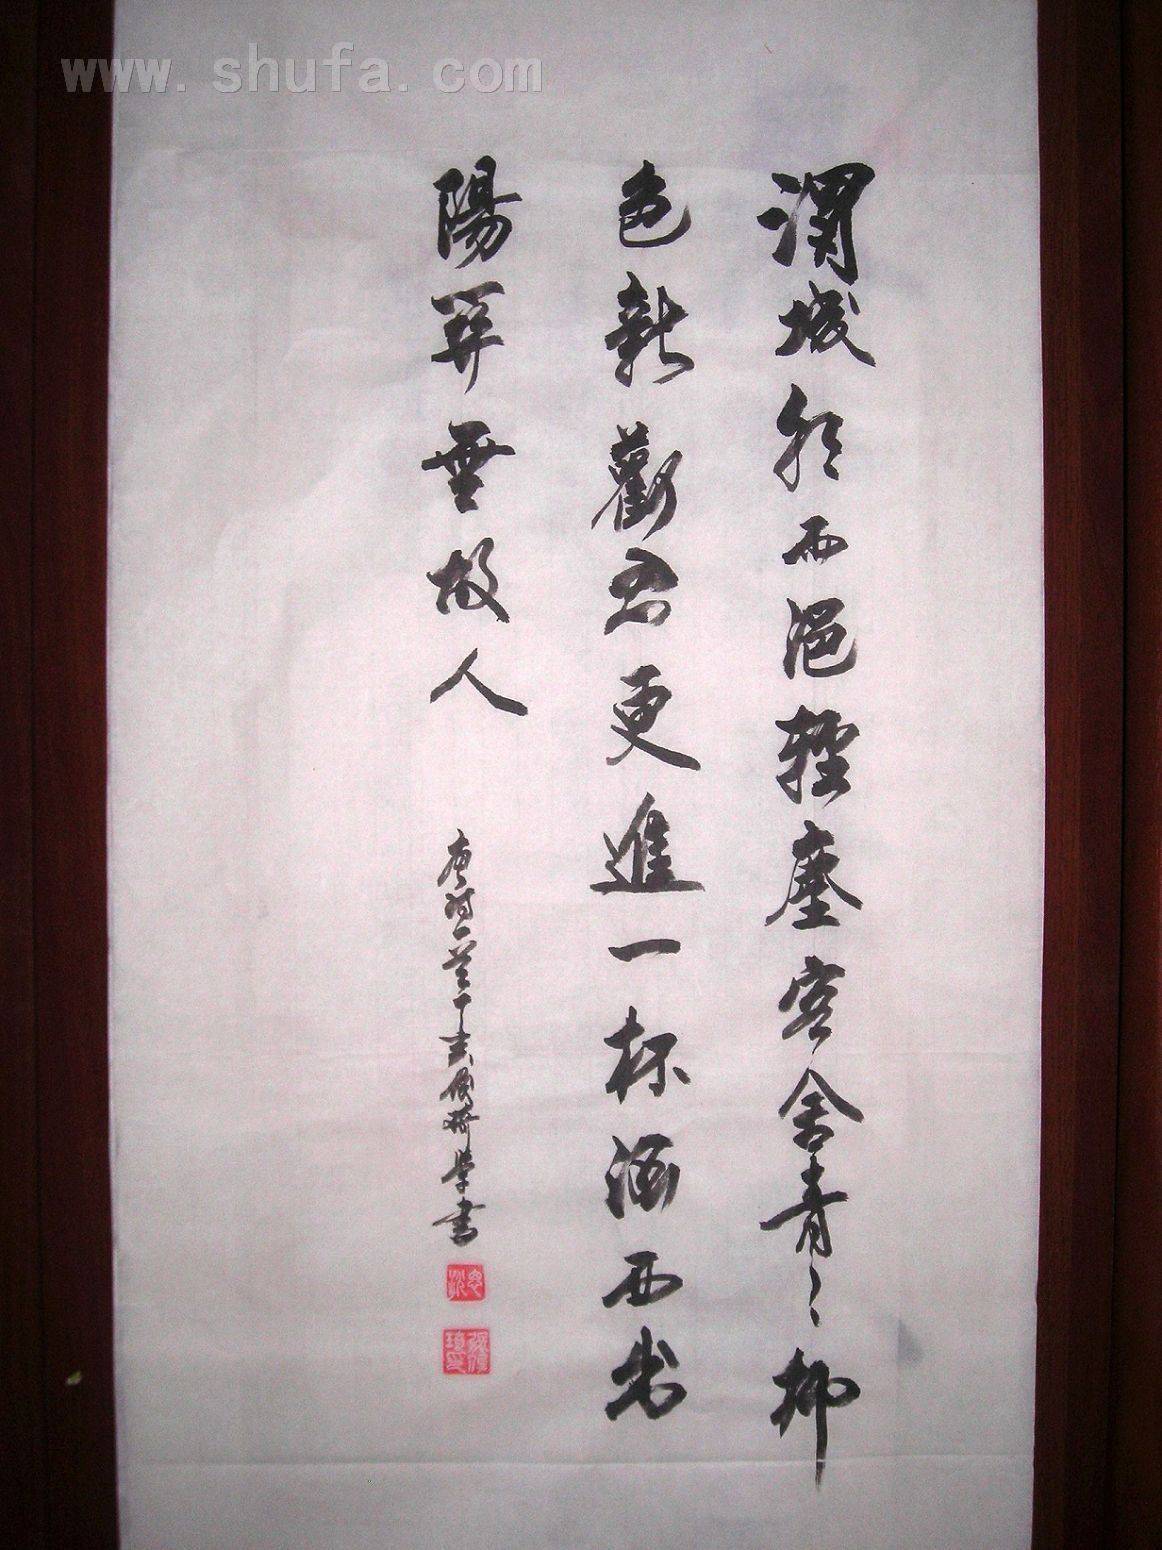 www.shufa.com
渭城朝雨浥輕塵客舍青〻柳
色新勸君更進一杯酒西出
陽關無故人
唐詩一首 書